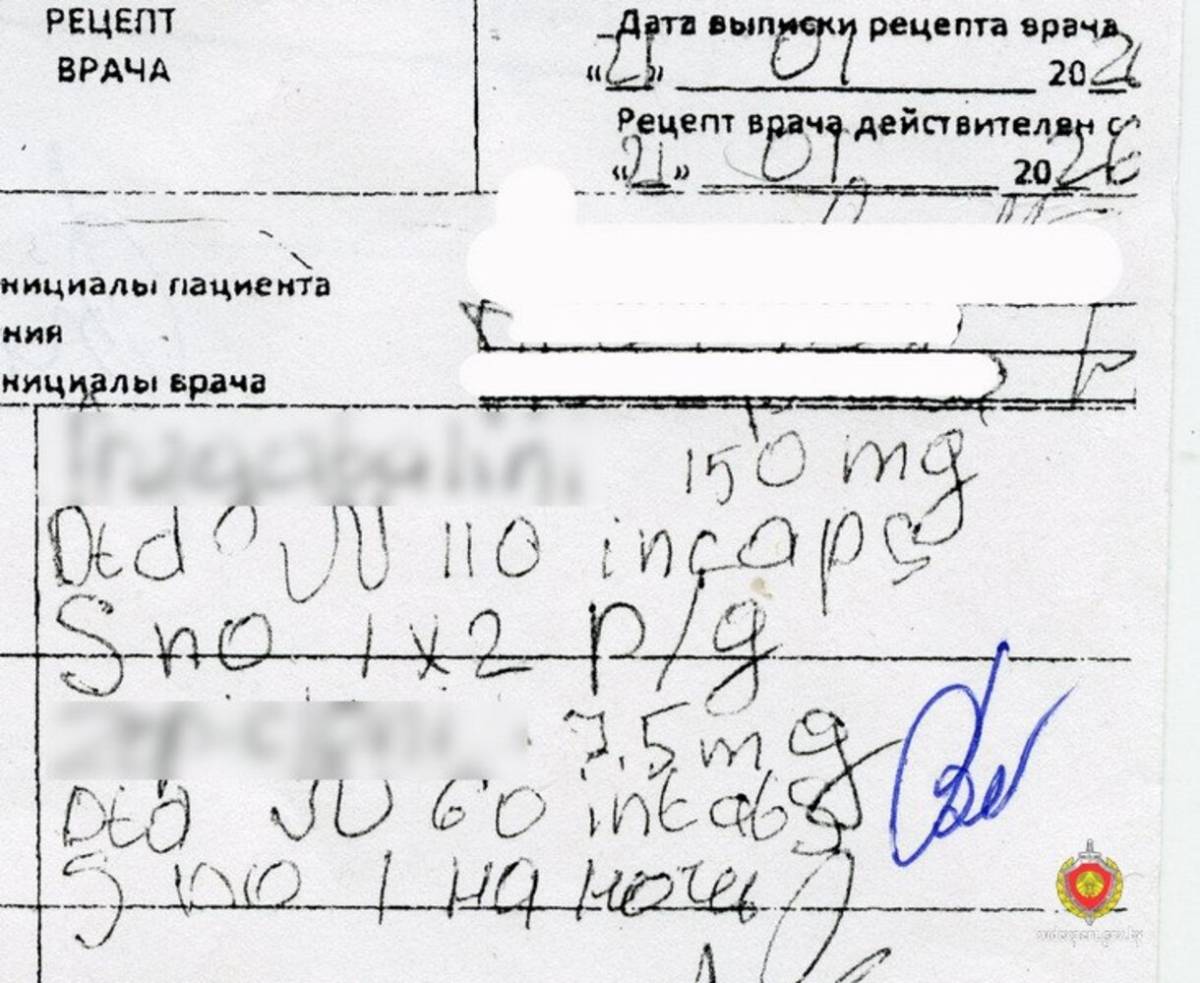 РЕЦЕПТ
ВРАЧА
Дата выписки рецепта врача
«21» 01 202
Рецепт врача действителен с
«21» 01 2026
нициалы пациента
ния
нициалы врача
150 mg
Dtd № 110 in caps
S по 1 x 2 р/g
7.5 mg
Dtd № 60 in tabs
S по 1 на ночь